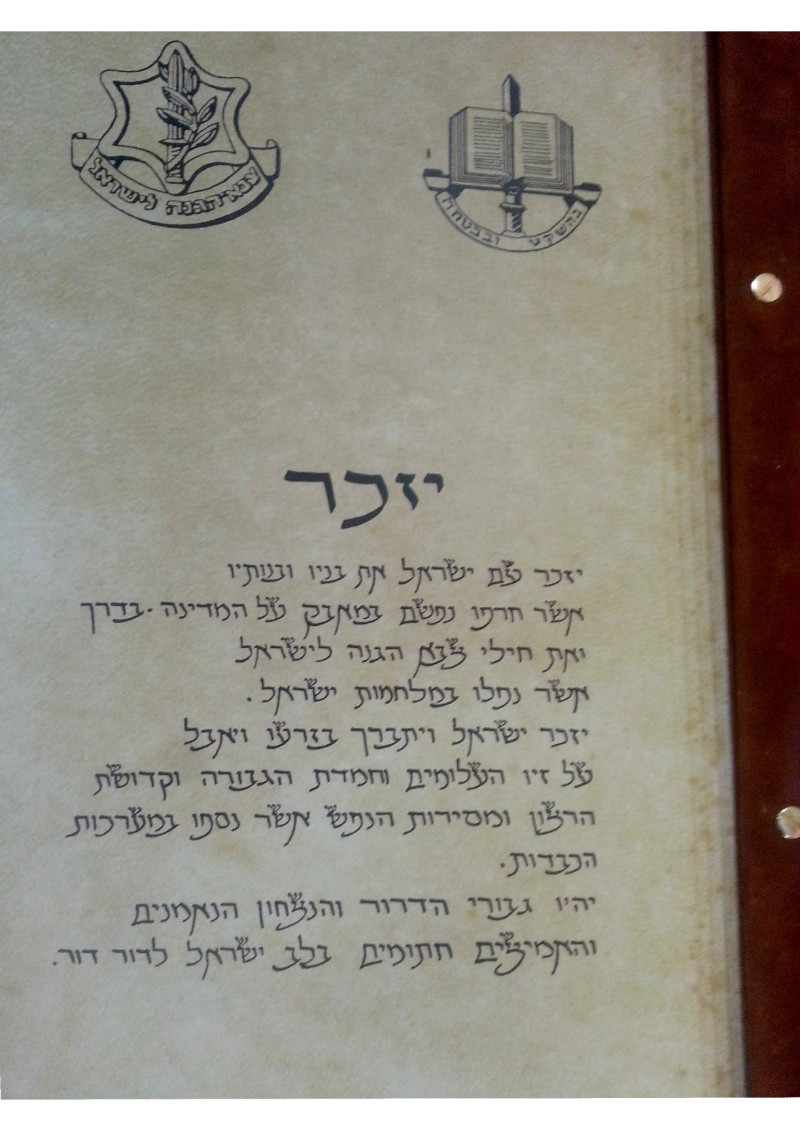 צבא הגנה לישראל
בהשקט ובבטחה
יזכר
יזכר עם ישראל את בניו ובנותיו
אשר חרפו נפשם במאבק על המדינה - בדרך
ואת חילי צבא הגנה לישראל
אשר נפלו במלחמות ישראל.
יזכר ישראל ויתברך בזרעו ויאבל
על זיו העלומים וחמדת הגבורה וקדושת
הרצון ומסירות הנפש אשר נספו במערכות
הכבדות.
יהיו גבורי הדרור והנצחון הנאמנים
והאמיצים חתומים בלב ישראל לדור דור.